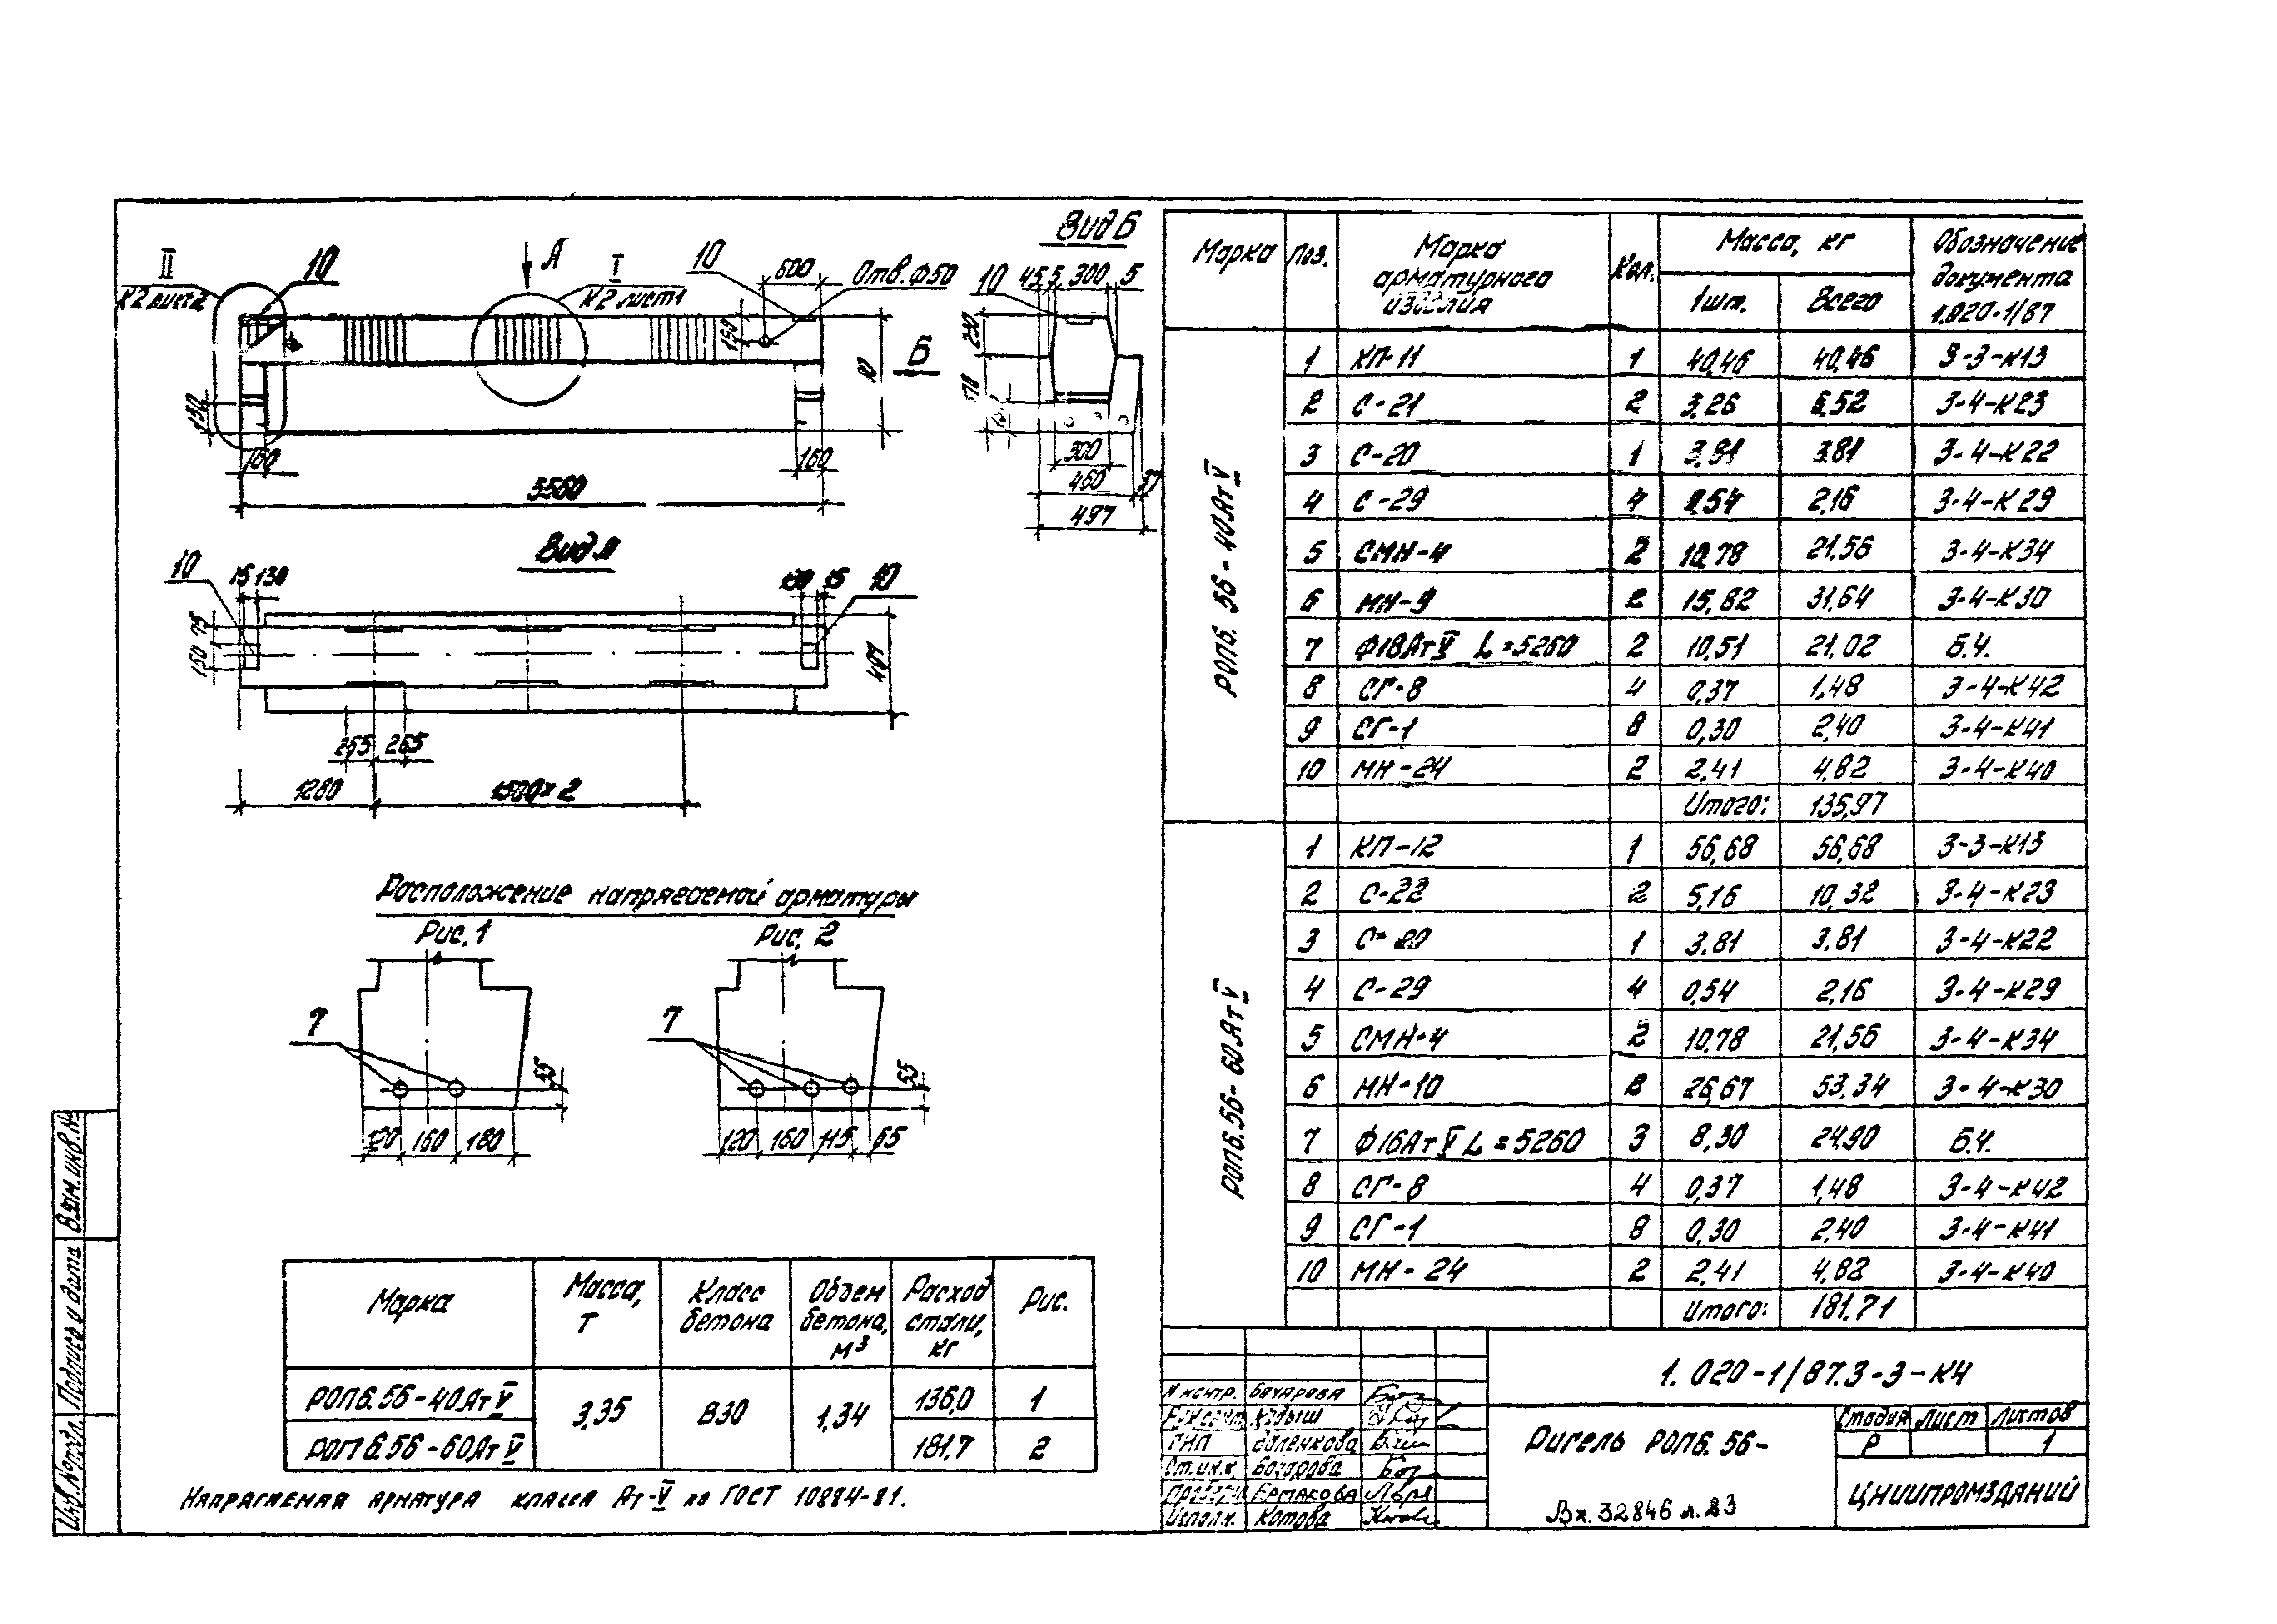 II
К2 лист 2
10
А
I
К2 лист 1
10
600
Отв. Ф50
150
Б
150
160
160
5560
Вид Б
10
45 5 300 5
300
460 37
497
Вид А
10
15 130
130 15
10
75
150
497
265 265
1280
1500×2
Расположение напрягаемой арматуры
Рис. 1
Рис. 2
7
7
55
55
120 160 180
120 160 115 65
Марка
Масса, т
Класс бетона
Объем бетона, м³
Расход стали, кг
Рис.
РОП6.56-40АтV
3,35
В30
1,34
136,0
1
РОП6.56-60АтV
181,7
2
Напрягаемая арматура класса Ат-V по ГОСТ 10884-81.
Марка
Поз.
Марка арматурного изделия
Кол.
Масса, кг
1шт.
Всего
Обозначение документа 1.020-1/87
РОП6.56-40АтV
1 КП-11 1 40,46 40,46 3-3-К13
2 С-21 2 3,26 6,52 3-4-К23
3 С-20 1 3,81 3,81 3-4-К22
4 С-29 4 0,54 2,16 3-4-К29
5 СМН-4 2 10,78 21,56 3-4-К34
6 МН-9 2 15,82 31,64 3-4-К30
7 Ф18АтV L=5260 2 10,51 21,02 Б.ч.
8 СГ-8 4 0,37 1,48 3-4-К42
9 СГ-1 8 0,30 2,40 3-4-К41
10 МН-24 2 2,41 4,82 3-4-К40
Итого: 135,97
РОП6.56-60АтV
1 КП-12 1 56,68 56,68 3-3-К13
2 С-22 2 5,16 10,32 3-4-К23
3 С-20 1 3,81 3,81 3-4-К22
4 С-29 4 0,54 2,16 3-4-К29
5 СМН-4 2 10,78 21,56 3-4-К34
6 МН-10 2 26,67 53,34 3-4-К30
7 Ф16АтV L=5260 3 8,30 24,90 Б.ч.
8 СГ-8 4 0,37 1,48 3-4-К42
9 СГ-1 8 0,30 2,40 3-4-К41
10 МН-24 2 2,41 4,82 3-4-К40
Итого: 181,71
1.020-1/87.3-3-К4
Н.контр. Бахарева
Кадыш
ГИП
Ст.инж.
Ермакова
Исполн. Котова
Ригель РОП6.56-
Стадия Лист Листов
Р 1
ЦНИИПРОМЗДАНИЙ
Вх. 32846 л. 23
Взам. инв. №
Подпись и дата
Инв. № подл.